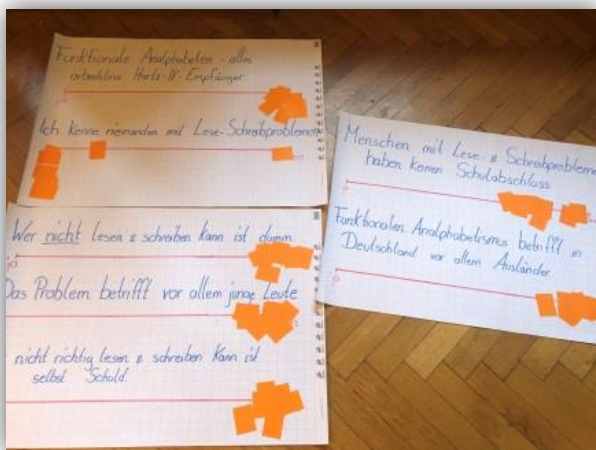 Funktionale Analphabeten - alles
arbeitslose Hartz-IV-Empfänger
Ich kenne niemanden mit Lese-Schreibproblemen
Wer nicht lesen & schreiben kann ist dumm
ja
Das Problem betrifft vor allem junge Leute
nicht richtig lesen & schreiben kann ist
selbst Schuld.
Menschen mit Lese & Schreibprobleme
haben keinen Schulabschluss
Funktionalen Analphabetismus betrifft in
Deutschland vor allem Ausländer.